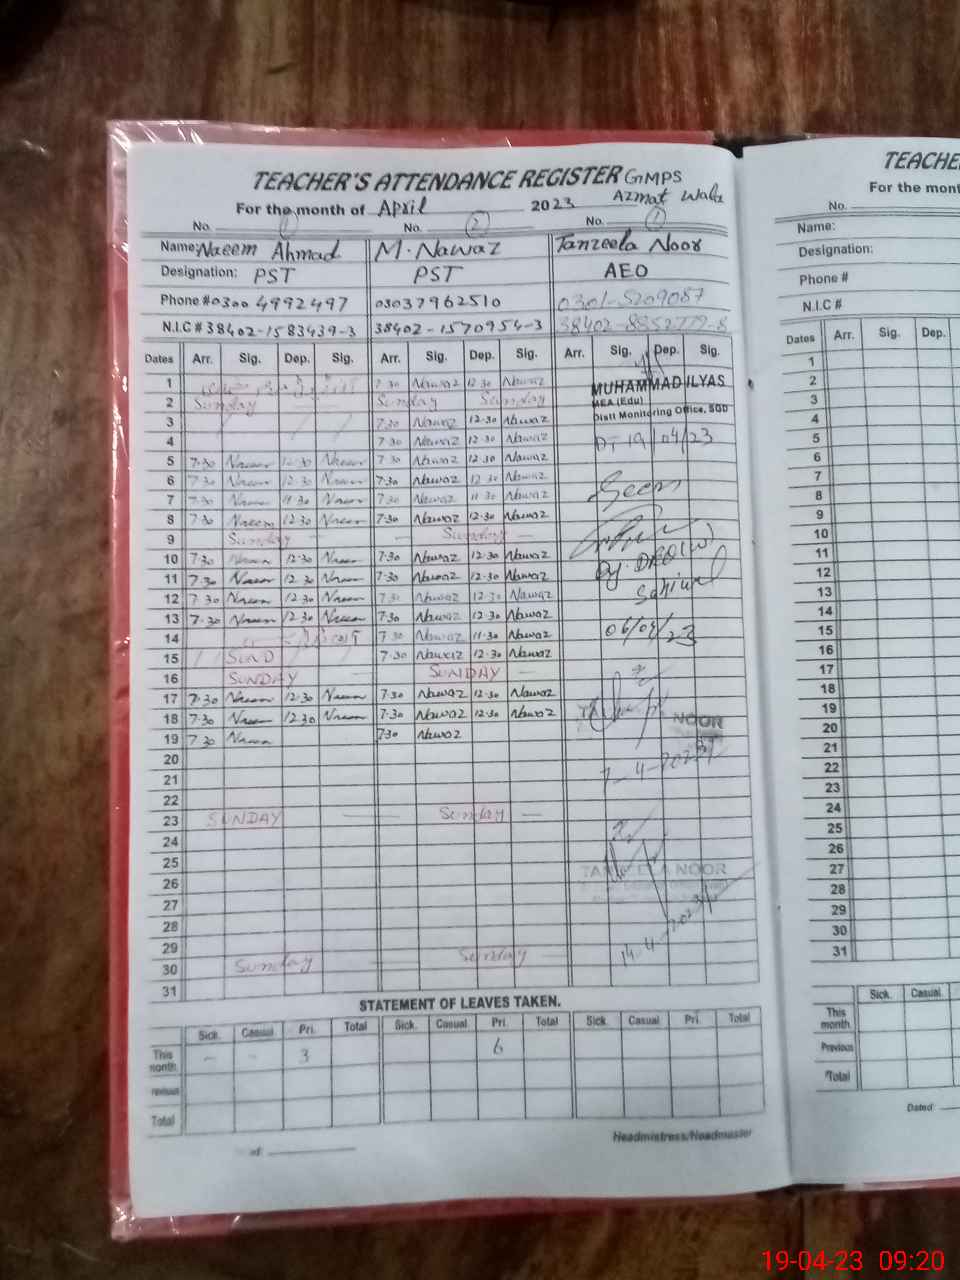 TEACHER'S ATTENDANCE REGISTER GMPS
For the month of April 2023 Azmat Wala
No. 1 No. 2 No. 1
Name: Naeem Ahmad M. Nawaz Tanzeela Noor
Designation: PST PST AEO
Phone # 0300 4992497 03037962510 0301-5209087
N.I.C # 38402-1583439-3 38402-1570954-3 38402-8852779-8
Dates Arr. Sig. Dep. Sig. Arr. Sig. Dep. Sig. Arr. Sig. Dep. Sig.
1 7.30 Nawaz 12.30 Nawaz MUHAMMAD ILYAS
2 Sunday Sunday Sunday MEA (Edu)
3 7.30 Nawaz 12.30 Nawaz Distt Monitoring Office, SGD
4 7.30 Nawaz 12.30 Nawaz DT 19/04/23
5 7.30 Naeem 12.30 Naeem 7.30 Nawaz 12.30 Nawaz
6 7.30 Naeem 12.30 Naeem 7.30 Nawaz 12.30 Nawaz
7 7.30 Naeem 11.30 Naeem 7.30 Nawaz 11.30 Nawaz Seen
8 7.30 Naeem 12.30 Naeem 7.30 Nawaz 12.30 Nawaz
9 Sunday — — Sunday —
10 7.30 Naeem 12.30 Naeem 7.30 Nawaz 12.30 Nawaz
11 7.30 Naeem 12.30 Naeem 7.30 Nawaz 12.30 Nawaz Dy. DEO (W)
12 7.30 Naeem 12.30 Naeem 7.30 Nawaz 12.30 Nawaz Sahiwal
13 7.30 Naeem 12.30 Naeem 7.30 Nawaz 12.30 Nawaz
14 7.30 Nawaz 11.30 Nawaz 06/04/23
15 SUND 7.30 Nawaz 12.30 Nawaz
16 SUNDAY — SUNDAY —
17 7.30 Naeem 12.30 Naeem 7.30 Nawaz 12.30 Nawaz
18 7.30 Naeem 12.30 Naeem 7.30 Nawaz 12.30 Nawaz NOOR
19 7.30 Naeem 7.30 Nawaz
20
21 7-4-2023
22
23 SUNDAY — — Sunday —
24
25
26 TANZEELA NOOR
27
28
29
30 Sunday — — Sunday —
31
STATEMENT OF LEAVES TAKEN.
Sick. Casual Pri. Total Sick. Casual Pri. Total Sick. Casual Pri. Total
This month - - 3 6
Total
Headmistress/Headmaster
TEACHE
For the mont
No.
Name:
Designation:
Phone #
N.I.C #
Dates Arr. Sig. Dep.
1
2
3
4
5
6
7
8
9
10
11
12
13
14
15
16
17
18
19
20
21
22
23
24
25
26
27
28
29
30
31
Sick. Casual
This month
Previous
Total
Dated
19-04-23 09:20